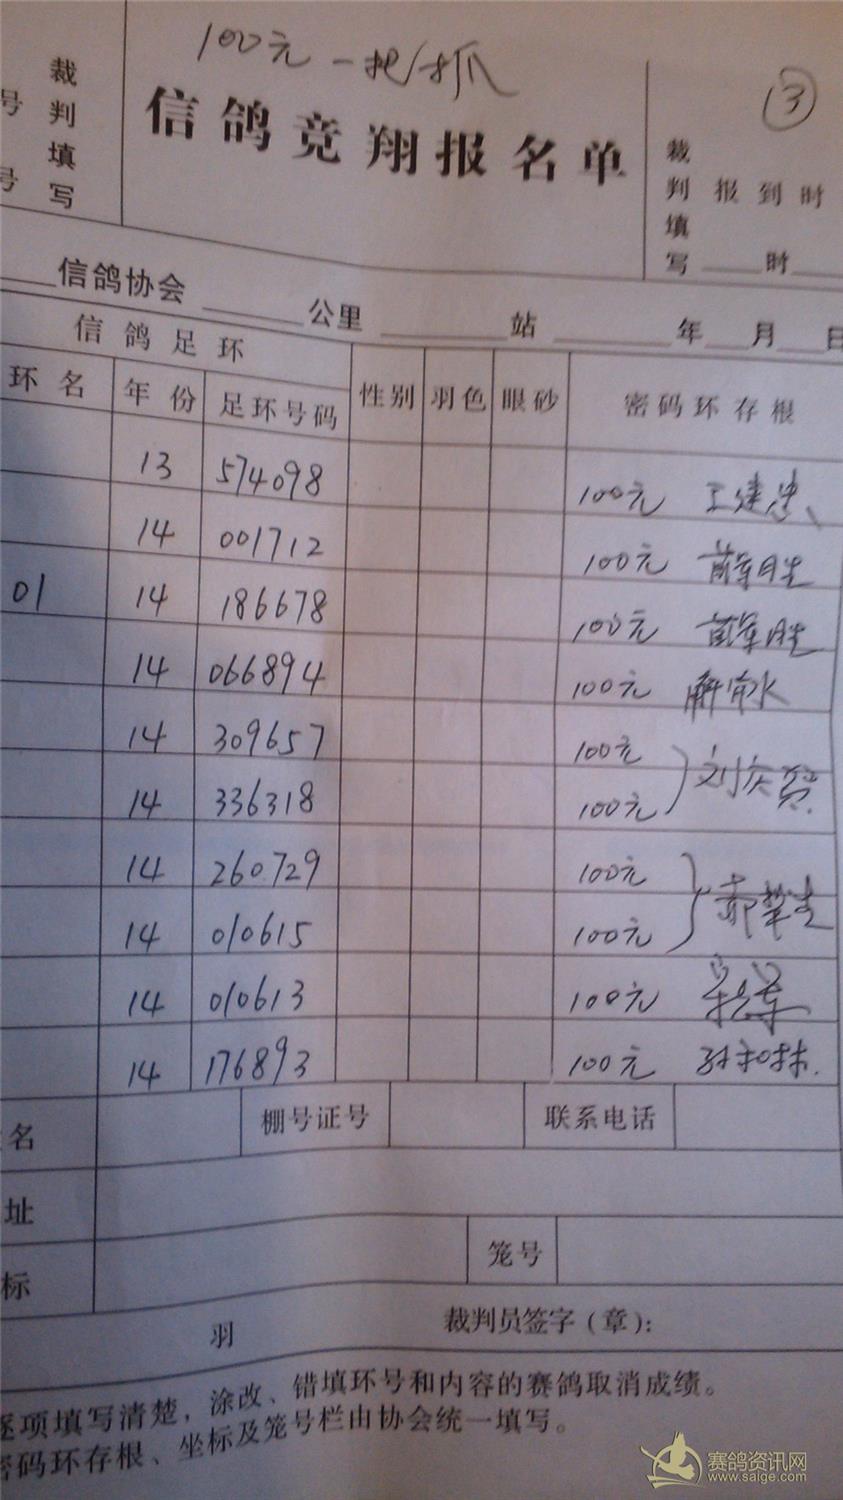 100元 一把抓
③
裁判填写
号
号
信鸽竞翔报名单
裁判填写
报到时
时
信鸽协会 公里 站 年 月 日
信鸽足环
环名 年份 足环号码 性别 羽色 眼砂 密码环存根
13 574098 100元 王建忠
14 001712 100元
01 14 186678 100元
14 066894 100元
14 309657 100元
14 336318 100元 刘庆贺
14 260729 100元
14 010615 100元
14 010613 100元
14 176893 100元 孙和林.
名 棚号证号 联系电话
址
标 笼号
羽 裁判员签字(章):
逐项填写清楚,涂改、错填环号和内容的赛鸽取消成绩。
密码环存根、坐标及笼号栏由协会统一填写。
赛鸽资讯网
www.saige.com